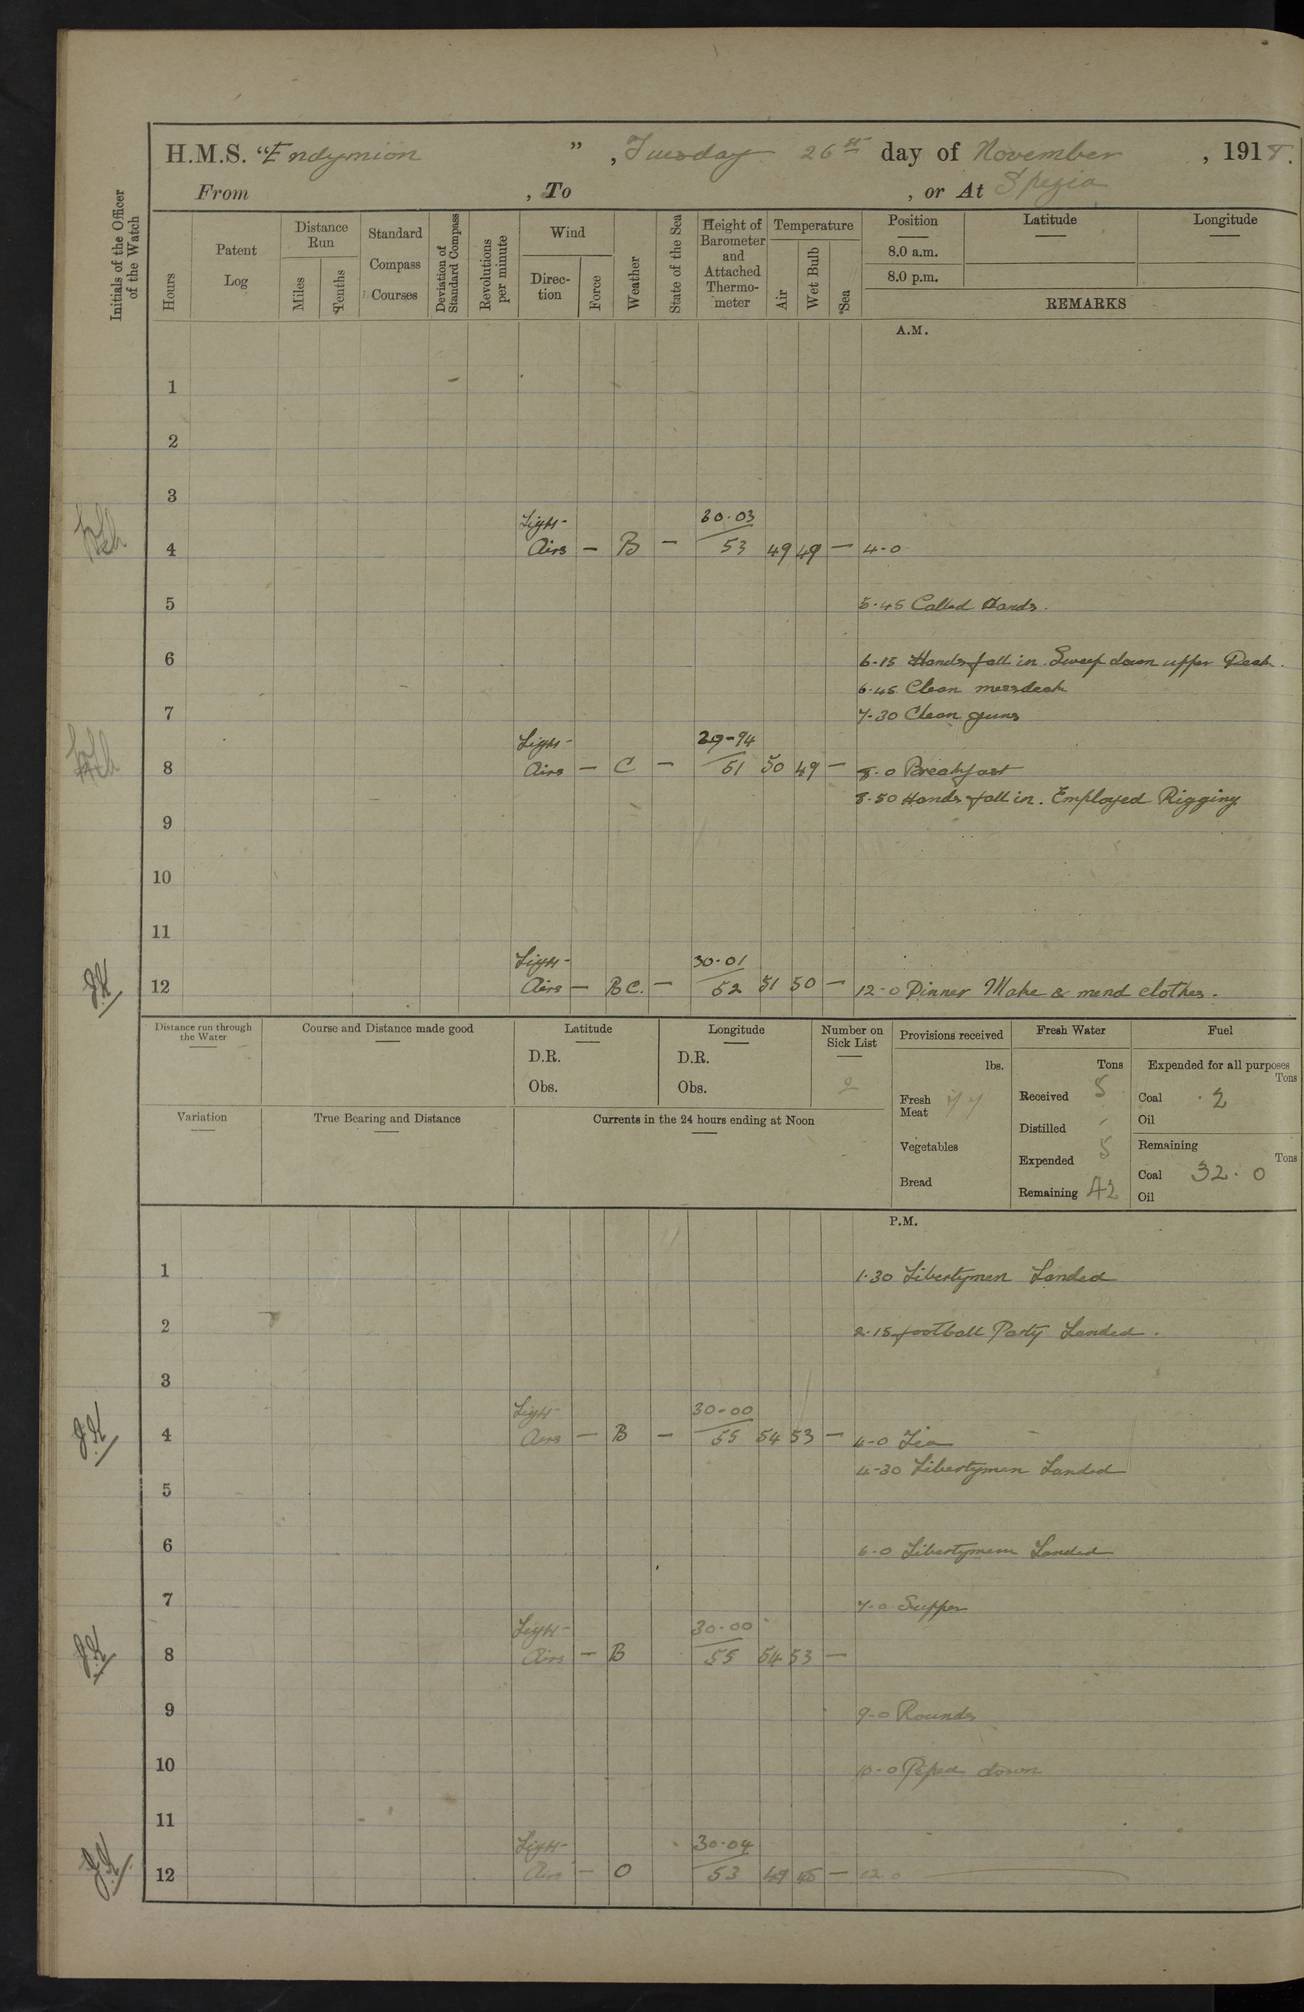 H.M.S. "Endymion", Tuesday 26th day of November, 1918.
From , To , or At Spezia
Initials of the Officer of the Watch
Hours
Patent Log
Distance Run
Miles
Tenths
Standard Compass Courses
Deviation of Standard Compass
Revolutions per minute
Wind
Direction
Force
Weather
State of the Sea
Height of Barometer and Attached Thermometer
Temperature
Air
Wet Bulb
Sea
Position Latitude Longitude
8.0 a.m.
8.0 p.m.
REMARKS
A.M.
1
2
3
Light 30.03
4 Airs — B — 53 49 49 — 4-0
5 5.45 Called Hands.
6 6-15 Hands fall in. Sweep down upper Deck.
6.45 Clean messdeck
7 7-30 Clean guns
Light 29-94
8 Airs — C — 51 50 49 — 8.0 Breakfast
8.50 Hands fall in. Employed Rigging
9
10
11
Light 30.01
JK 12 Airs — BC. — 52 51 50 — 12-0 Dinner Make & mend clothes.
Distance run through the Water
Course and Distance made good
Latitude
D.R.
Obs.
Longitude
D.R.
Obs.
Number on Sick List
2
Variation
True Bearing and Distance
Currents in the 24 hours ending at Noon
Provisions received
lbs.
Fresh Meat
Vegetables
Bread
Fresh Water
Tons
Received 5
Distilled
Expended 5
Remaining 42
Fuel
Expended for all purposes
Tons
Coal 2
Oil
Remaining
Tons
Coal 32.0
Oil
P.M.
1 1.30 Libertymen Landed
2 2.15 football Party Landed.
3
Light 30-00
JK 4 Airs — B — 55 54 53 — 4-0 Tea
4-30 Libertymen Landed
5
6 6-0 Libertymen Landed
7 7-0 Supper
Light 30.00
JK 8 Airs — B 55 54 53 —
9 9-0 Rounds
10 10-0 Piped down
11
Light 30.04
JK 12 Airs — O 53 49 — 12.0